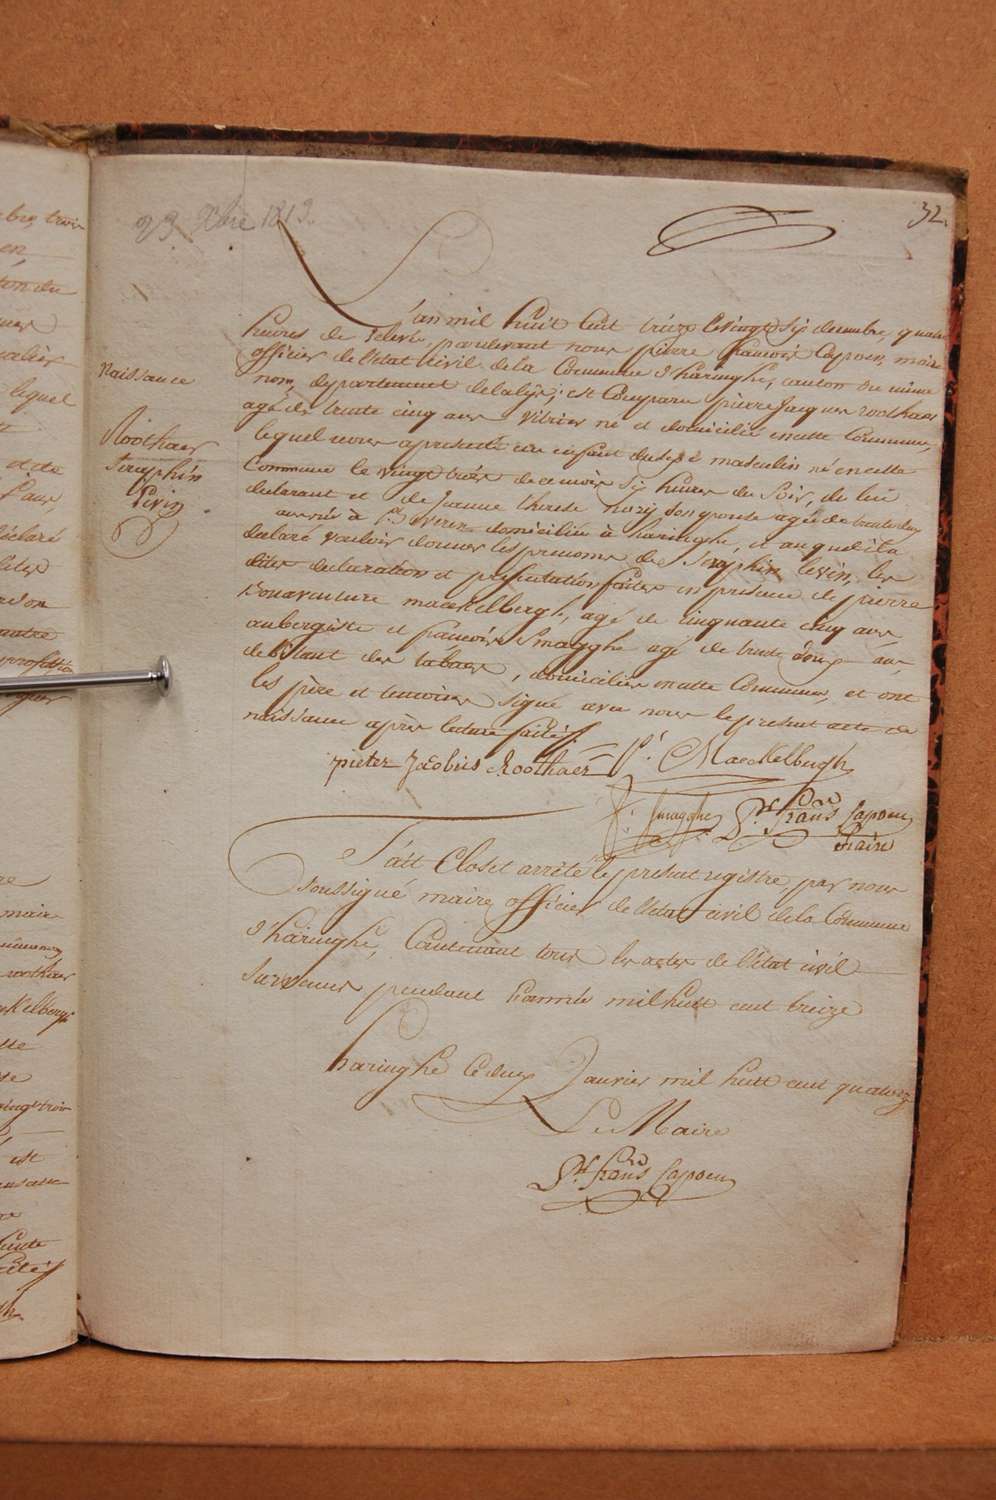 23 Xbre 1813.
32.
Naissance
Roothaer
Seraphin
Livin
L'an mil huit cent treize le vingt six decembre, quatre
heures de relevée, pardevant nous pierre francois Capoen, maire
officier de l'état civil de la Commune d'haringhe, canton du même
nom, departement de la lijs; est Comparu pierre Jacques roothaer
agé de trente cinq ans vitrier né et domicilié en cette Commune,
lequel nous a presenté un enfant du sexe masculin né en cette
Commune le vingt trois de ce mois six heures du soir, de lui
declarant et de Jeanne therese son epouse agée de trente deux
ans née à domiciliée à haringhe, et auquel il a
declaré vouloir donner les prenoms de Seraphin Levin, les
dites declaration et presentation faites en presence de pierre
Bonaventure maeckelbergh, agé de cinquante cinq ans,
aubergiste et francois Smagghe agé de trente ans,
debitant des tabacs, domiciliés en cette Commune, et ont
les père et temoins signé avec nous le present acte de
naissance après lecture faite./.
pieter Jacobus Roothaer P. Maeckelbergh
F. Smagghe P.re frans Capoen
Maire
Fait Clos et arrêté le present registre par nous
soussigné maire officier de l'état civil de la Commune
d'haringhe, Contenant tous les actes de l'état civil
survenus pendant l'année mil huit cent treize
haringhe ce deux Janvier mil huit cent quatorze
Le Maire
P.re frans Capoen
bre, trois
en
ton du
lequel
et de
declaré
roothaer
ckelbergh
vingt trois
est